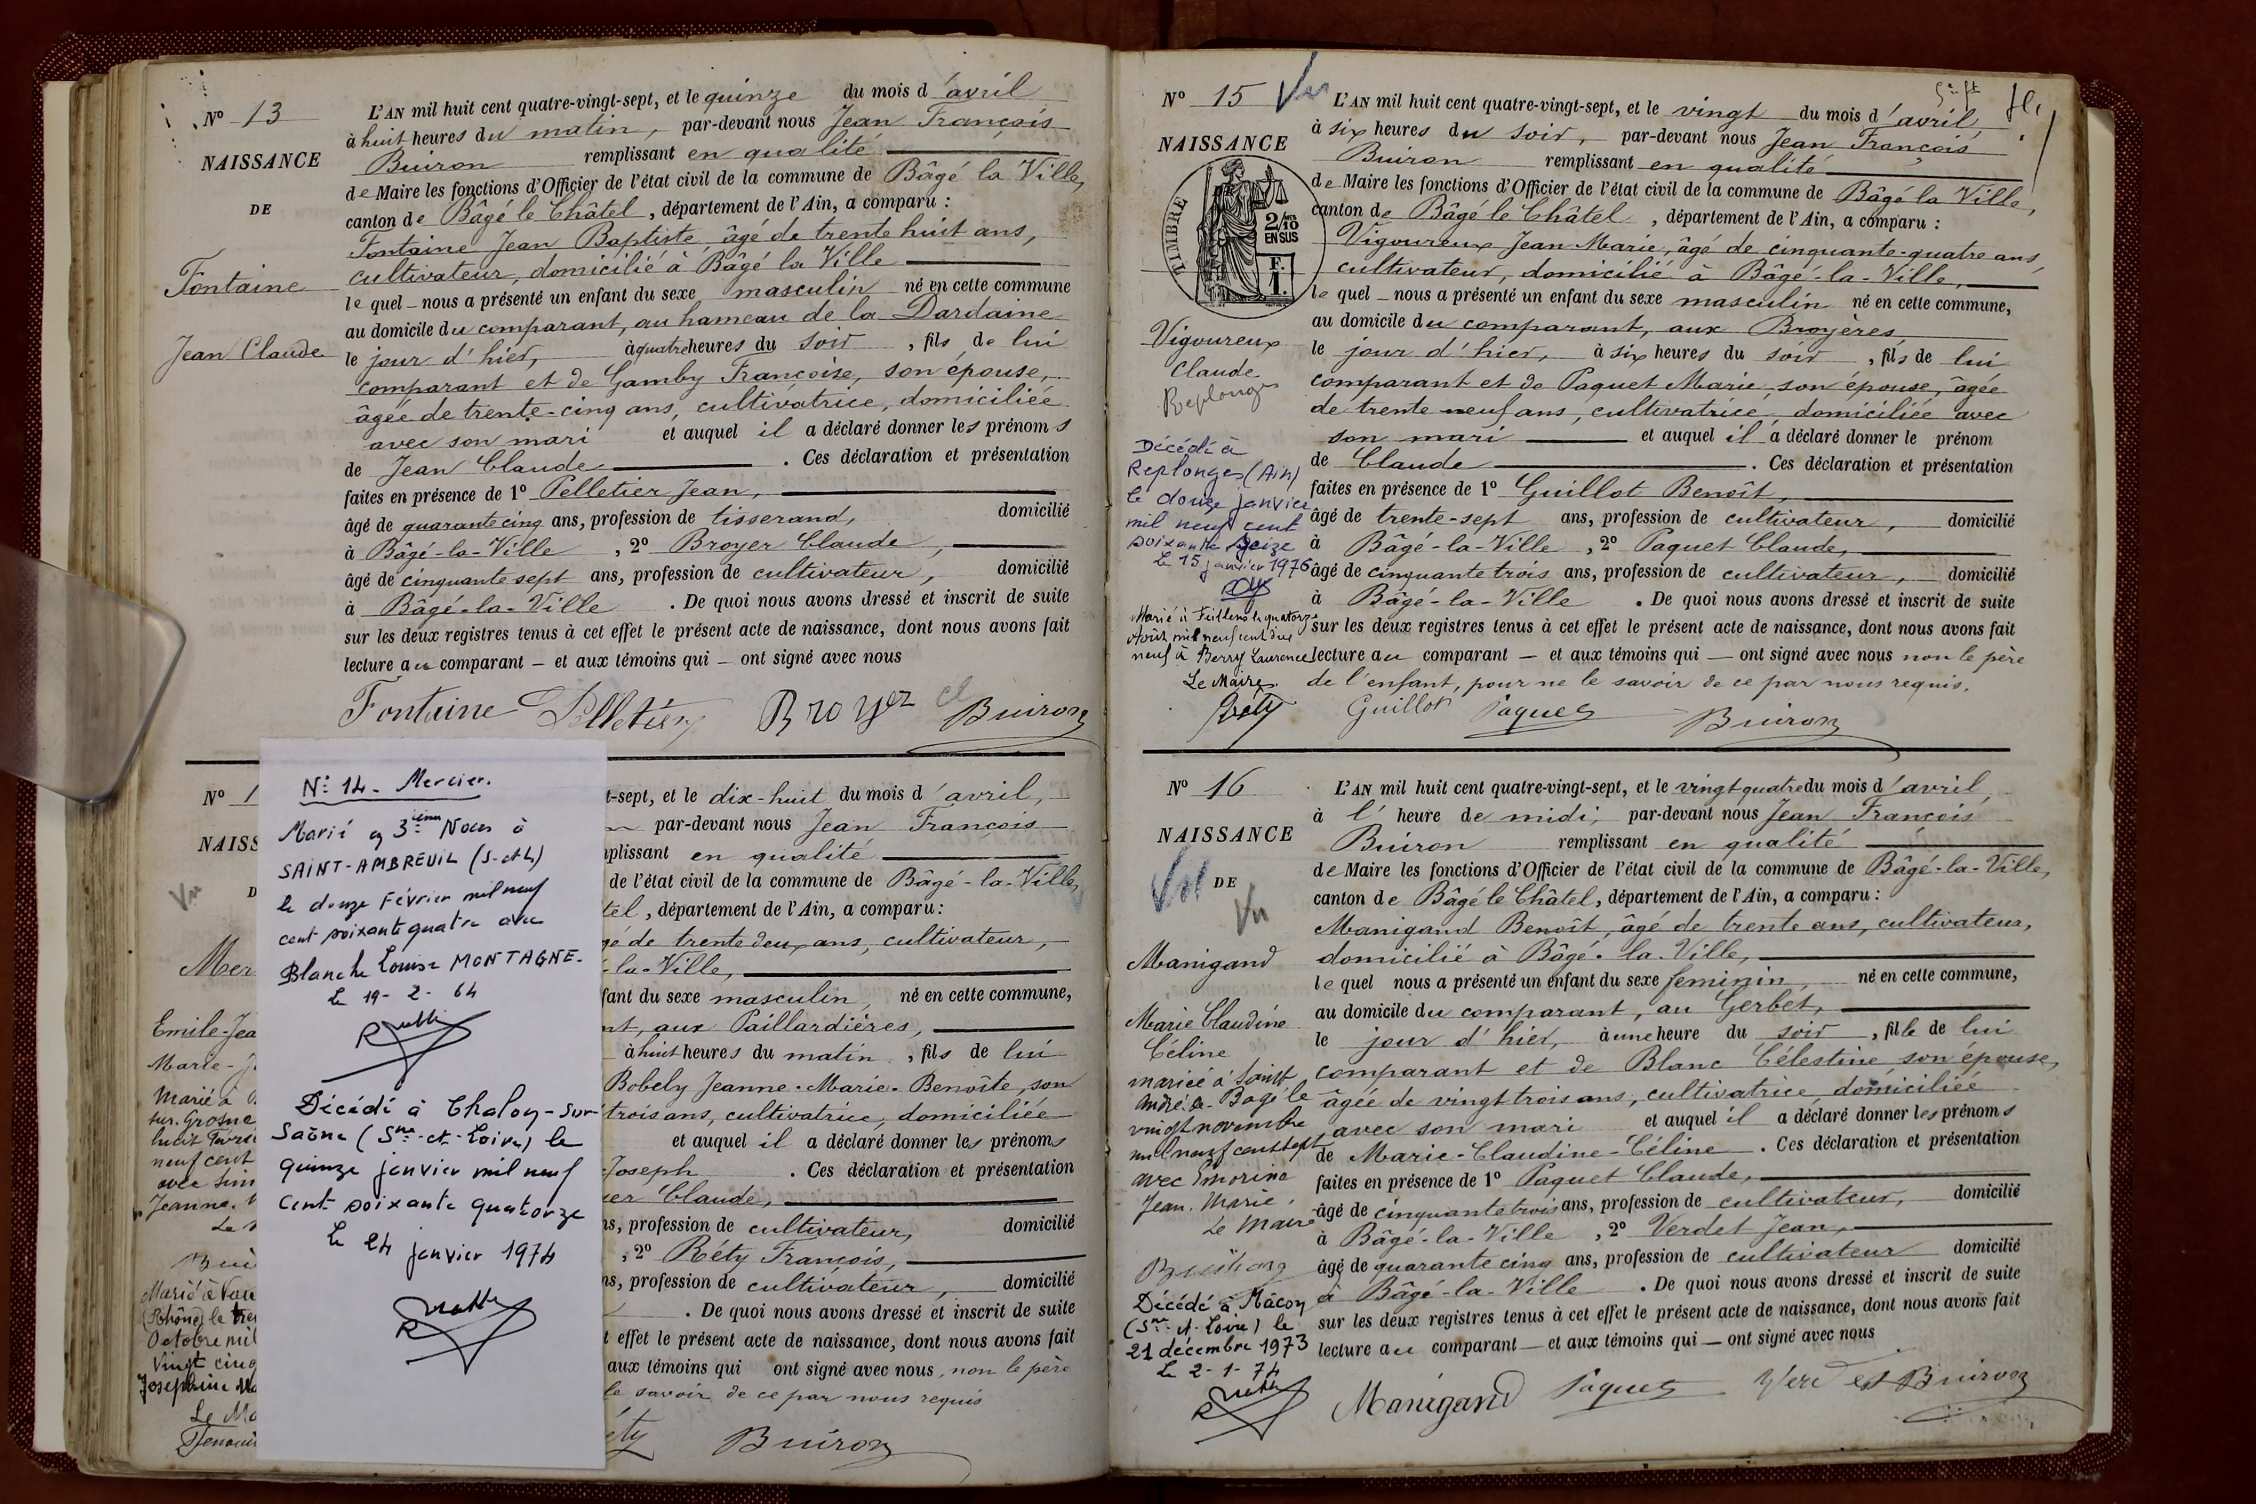 N° 13
NAISSANCE
DE
Fontaine
Jean Claude
L'AN mil huit cent quatre-vingt-sept, et le quinze du mois d'avril
à huit heures du matin, par-devant nous Jean François
Buiron remplissant en qualité
de Maire les fonctions d'Officier de l'état civil de la commune de Bâgé la Ville,
canton de Bâgé le Châtel, département de l'Ain, a comparu :
Fontaine Jean Baptiste, âgé de trente huit ans,
cultivateur, domicilié à Bâgé la Ville
lequel nous a présenté un enfant du sexe masculin né en cette commune
au domicile du comparant, au hameau de la Dardaine
le jour d'hier, à quatre heures du soir, fils de lui
comparant et de Gamby Françoise, son épouse,
âgée de trente-cinq ans, cultivatrice, domiciliée
avec son mari et auquel il a déclaré donner les prénoms
de Jean Claude . Ces déclaration et présentation
faites en présence de 1° Pelletier Jean,
âgé de quarante cinq ans, profession de tisserand, domicilié
à Bâgé-la-Ville, 2° Broyer Claude,
âgé de cinquante sept ans, profession de cultivateur, domicilié
à Bâgé-la-Ville . De quoi nous avons dressé et inscrit de suite
sur les deux registres tenus à cet effet le présent acte de naissance, dont nous avons fait
lecture au comparant – et aux témoins qui – ont signé avec nous
Fontaine Pelletier Broyer cl Buiron
N° 1
NAISS
D
Vu
Mer
Emile-Jea
Marie-J
Marié à
sur-Grosne
huit
neuf cent
avec
Jeanne
Marié à Vau
(Rhône) le
Octobre mil
Vingt cinq
Joséphine
Le Ma
N° 14 - Mercier.
Marié en 3ième Noces à
SAINT-AMBREUIL (S-et-L)
le douze Février mil neuf
cent soixante quatre avec
Blanche Louise MONTAGNE.
Le 19-2-64
Décédé à Chalon-sur-
Saône (Sne-et-Loire) le
quinze janvier mil neuf
cent soixante quatorze
Le 24 janvier 1974
t-sept, et le dix-huit du mois d'avril,
par-devant nous Jean François
mplissant en qualité
de l'état civil de la commune de Bâgé-la-Ville,
tel, département de l'Ain, a comparu :
gé de trente deux ans, cultivateur,
-la-Ville,
fant du sexe masculin, né en cette commune,
nt, aux Paillardières,
à huit heures du matin, fils de lui
Bobely Jeanne-Marie-Benoîte, son
trois ans, cultivatrice, domiciliée
et auquel il a déclaré donner les prénoms
Joseph . Ces déclaration et présentation
er Claude,
ns, profession de cultivateur, domicilié
, 2° Réty François,
ns, profession de cultivateur, domicilié
. De quoi nous avons dressé et inscrit de suite
t effet le présent acte de naissance, dont nous avons fait
aux témoins qui ont signé avec nous, non le père
le savoir de ce par nous requis
éty Buiron
N° 15 Vu
NAISSANCE
TIMBRE
2/10
EN SUS
F.
1.
Vigoureux
Claude
Replonges
Décédé à
Replonges (Ain)
le douze janvier
mil neuf cent
soixante seize
Le 15 janvier 1976
Marié à Feillens le quatorze
Août mil neuf cent dix
neuf à Berry Laurence
Le Maire
Réty
L'AN mil huit cent quatre-vingt-sept, et le vingt du mois d'avril,
à six heures du soir, par-devant nous Jean François
Buiron remplissant en qualité
de Maire les fonctions d'Officier de l'état civil de la commune de Bâgé la Ville,
canton de Bâgé le Châtel, département de l'Ain, a comparu :
Vigoureux Jean Marie, âgé de cinquante-quatre ans,
cultivateur, domicilié à Bâgé-la-Ville,
lequel – nous a présenté un enfant du sexe masculin né en cette commune,
au domicile du comparant, aux Broyères
le jour d'hier, à six heures du soir, fils de lui
comparant et de Paquet Marie, son épouse, âgée
de trente-neuf ans, cultivatrice, domiciliée avec
son mari et auquel il a déclaré donner le prénom
de Claude . Ces déclaration et présentation
faites en présence de 1° Guillot Benoît,
âgé de trente-sept ans, profession de cultivateur, domicilié
à Bâgé-la-Ville, 2° Paquet Claude,
âgé de cinquante trois ans, profession de cultivateur, domicilié
à Bâgé-la-Ville . De quoi nous avons dressé et inscrit de suite
sur les deux registres tenus à cet effet le présent acte de naissance, dont nous avons fait
lecture au comparant – et aux témoins qui – ont signé avec nous non le père
de l'enfant, pour ne le savoir de ce par nous requis.
Guillot Paquet Buiron
N° 16
NAISSANCE
DE
Vu
Manigand
Marie Claudine
Céline
mariée à Saint
André-de-Bagé le
vingt novembre
mil neuf cent sept
avec Emorine
Jean. Marie
Le Maire
Décédé à Mâcon
(Sne-et-Loire) le
21 décembre 1973
Le 2-1-74
L'AN mil huit cent quatre-vingt-sept, et le vingt quatre du mois d'avril,
à l'heure de midi, par-devant nous Jean François
Buiron remplissant en qualité
de Maire les fonctions d'Officier de l'état civil de la commune de Bâgé-la-Ville,
canton de Bâgé le Châtel, département de l'Ain, a comparu :
Manigand Benoît, âgé de trente ans, cultivateur,
domicilié à Bâgé-la-Ville,
lequel nous a présenté un enfant du sexe feminin, né en cette commune,
au domicile du comparant, au Gerbet,
le jour d'hier, à une heure du soir, fille de lui
comparant et de Blanc Célestine, son épouse,
âgée de vingt trois ans, cultivatrice, domiciliée
avec son mari et auquel il a déclaré donner les prénoms
de Marie-Claudine-Céline . Ces déclaration et présentation
faites en présence de 1° Paquet Claude,
âgé de cinquante trois ans, profession de cultivateur, domicilié
à Bâgé-la-Ville, 2° Verdet Jean,
âgé de quarante cinq ans, profession de cultivateur domicilié
à Bâgé-la-Ville . De quoi nous avons dressé et inscrit de suite
sur les deux registres tenus à cet effet le présent acte de naissance, dont nous avons fait
lecture au comparant – et aux témoins qui – ont signé avec nous
Manigand Paquet Verdet Buiron